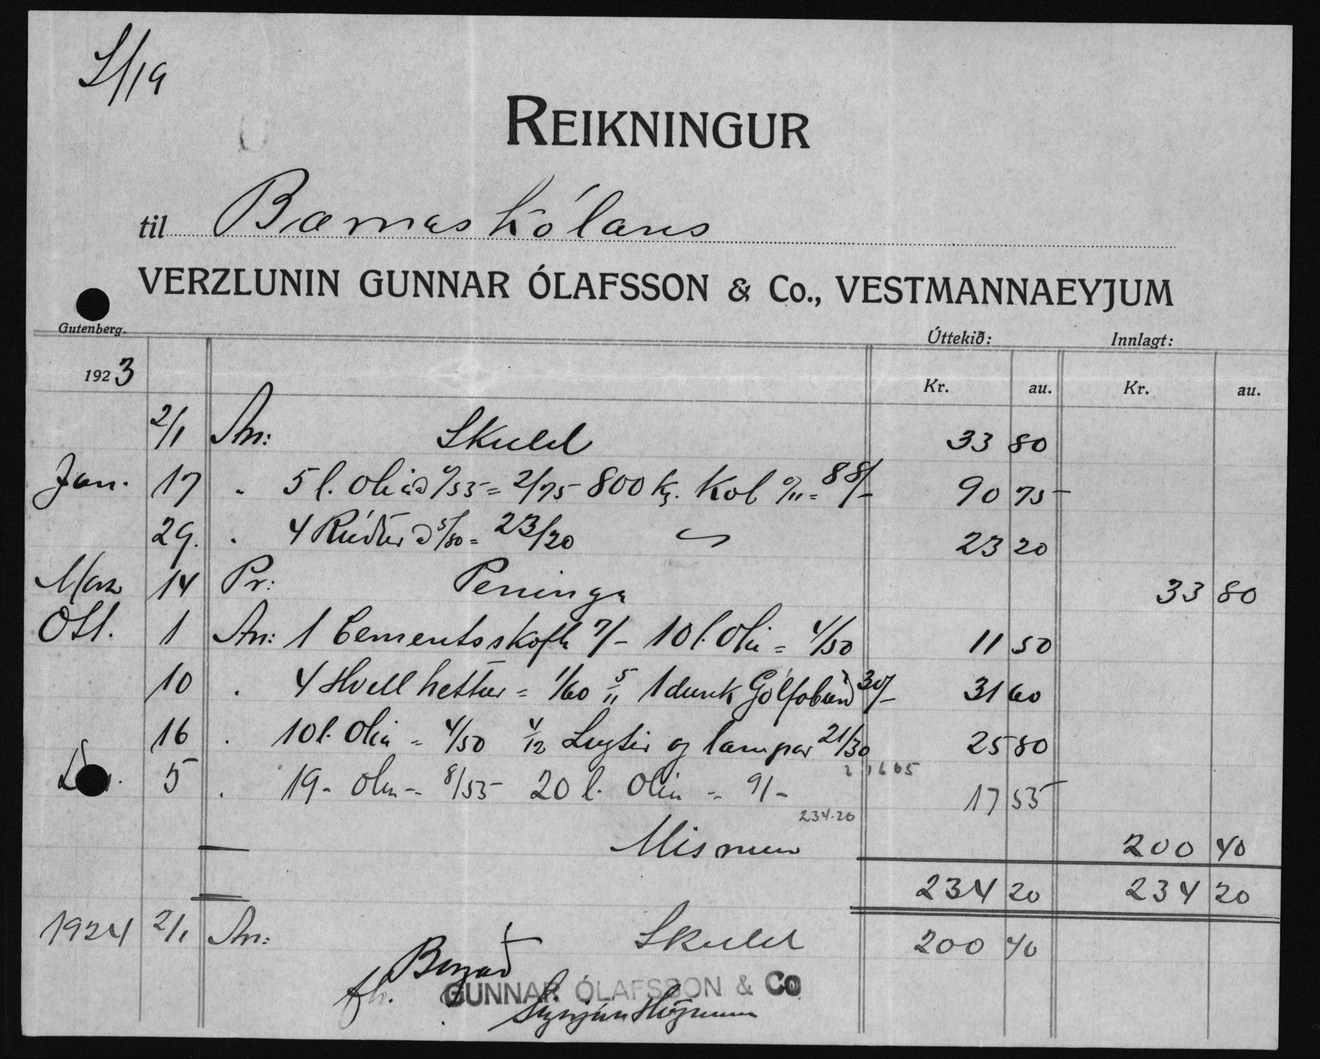 L/19
REIKNINGUR
til Barnaskólans
VERZLUNIN GUNNAR ÓLAFSSON & Co., VESTMANNAEYJUM
Gutenberg.
Úttekið: Innlagt:
1923 Kr. au. Kr. au.
2/1 An: Skuld 33 80
Jan. 17 " 5 l. Olia à 0/55 = 2/75 - 800 kg. Kol = 88/- 90 75
29. " 4 Rúður à 5/80 = 23/20 23 20
Marz 14 Pr: Peninga 33 80
Okt. 1 An: 1 Cementsskofla 7/- 10 l. Olia = 4/50 11 50
10 " 4 Hvellhettur = 1/60 5/11 1 dunk Gólfáburð 30/- 31 60
16 " 10 l. Olia = 4/50 4/12 Lugtir og lampar 21/30 25 80
2 1605
5 " 19 - Olia = 8/55 20 l. Olia = 9/- 17 55
234.20
Mismun 200 40
234 20 234 20
1924 2/1 An: Skuld 200 40
Borgað
GUNNAR ÓLAFSSON & Co